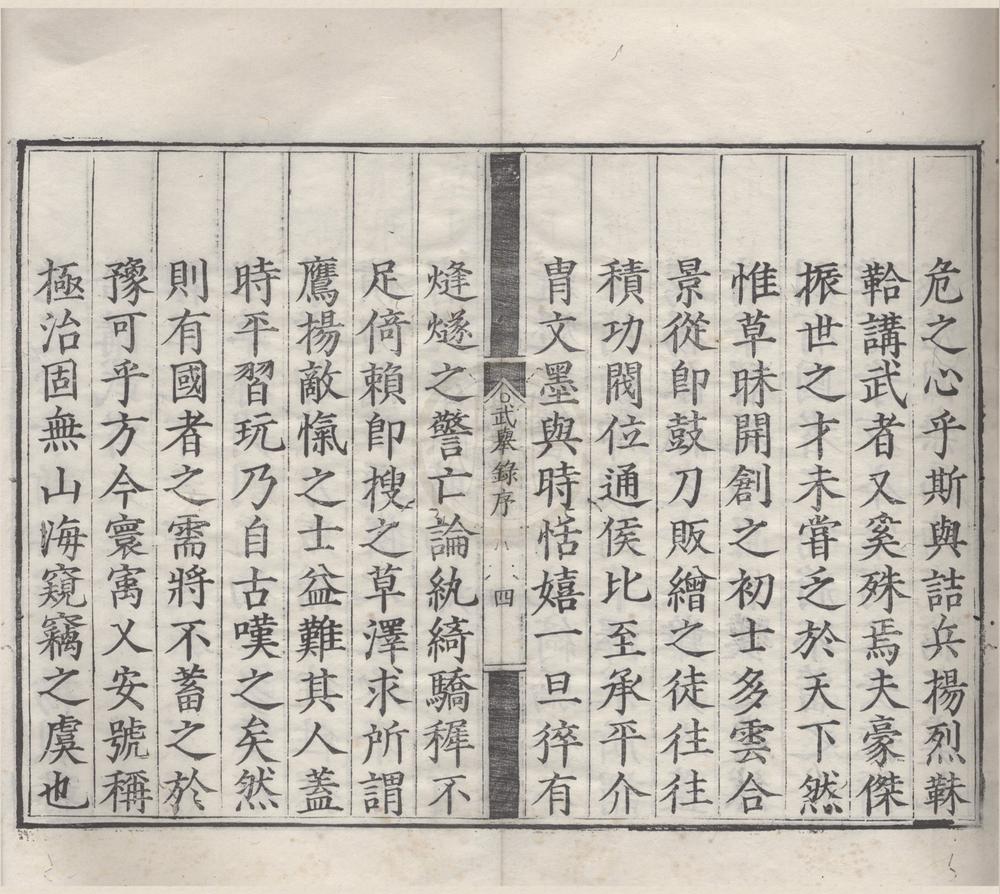 危之心乎斯與詰兵楊烈靺
鞈講武者又奚殊焉夫豪傑
振世之才未甞乏於天下然
惟草昧開創之初士多雲合
景從卽鼓刀販繒之徒往往
積功閥位通侯比至承平介
冑文墨與時恬嬉一旦猝有
武舉錄序
四
烽燧之警亡論紈綺驕穉不
足倚賴卽搜之草澤求所謂
鷹揚敵愾之士益難其人蓋
時平習玩乃自古嘆之矣然
則有國者之需將不蓄之於
豫可乎方今寰㝢乂安號稱
極治固無山海窺竊之虞也